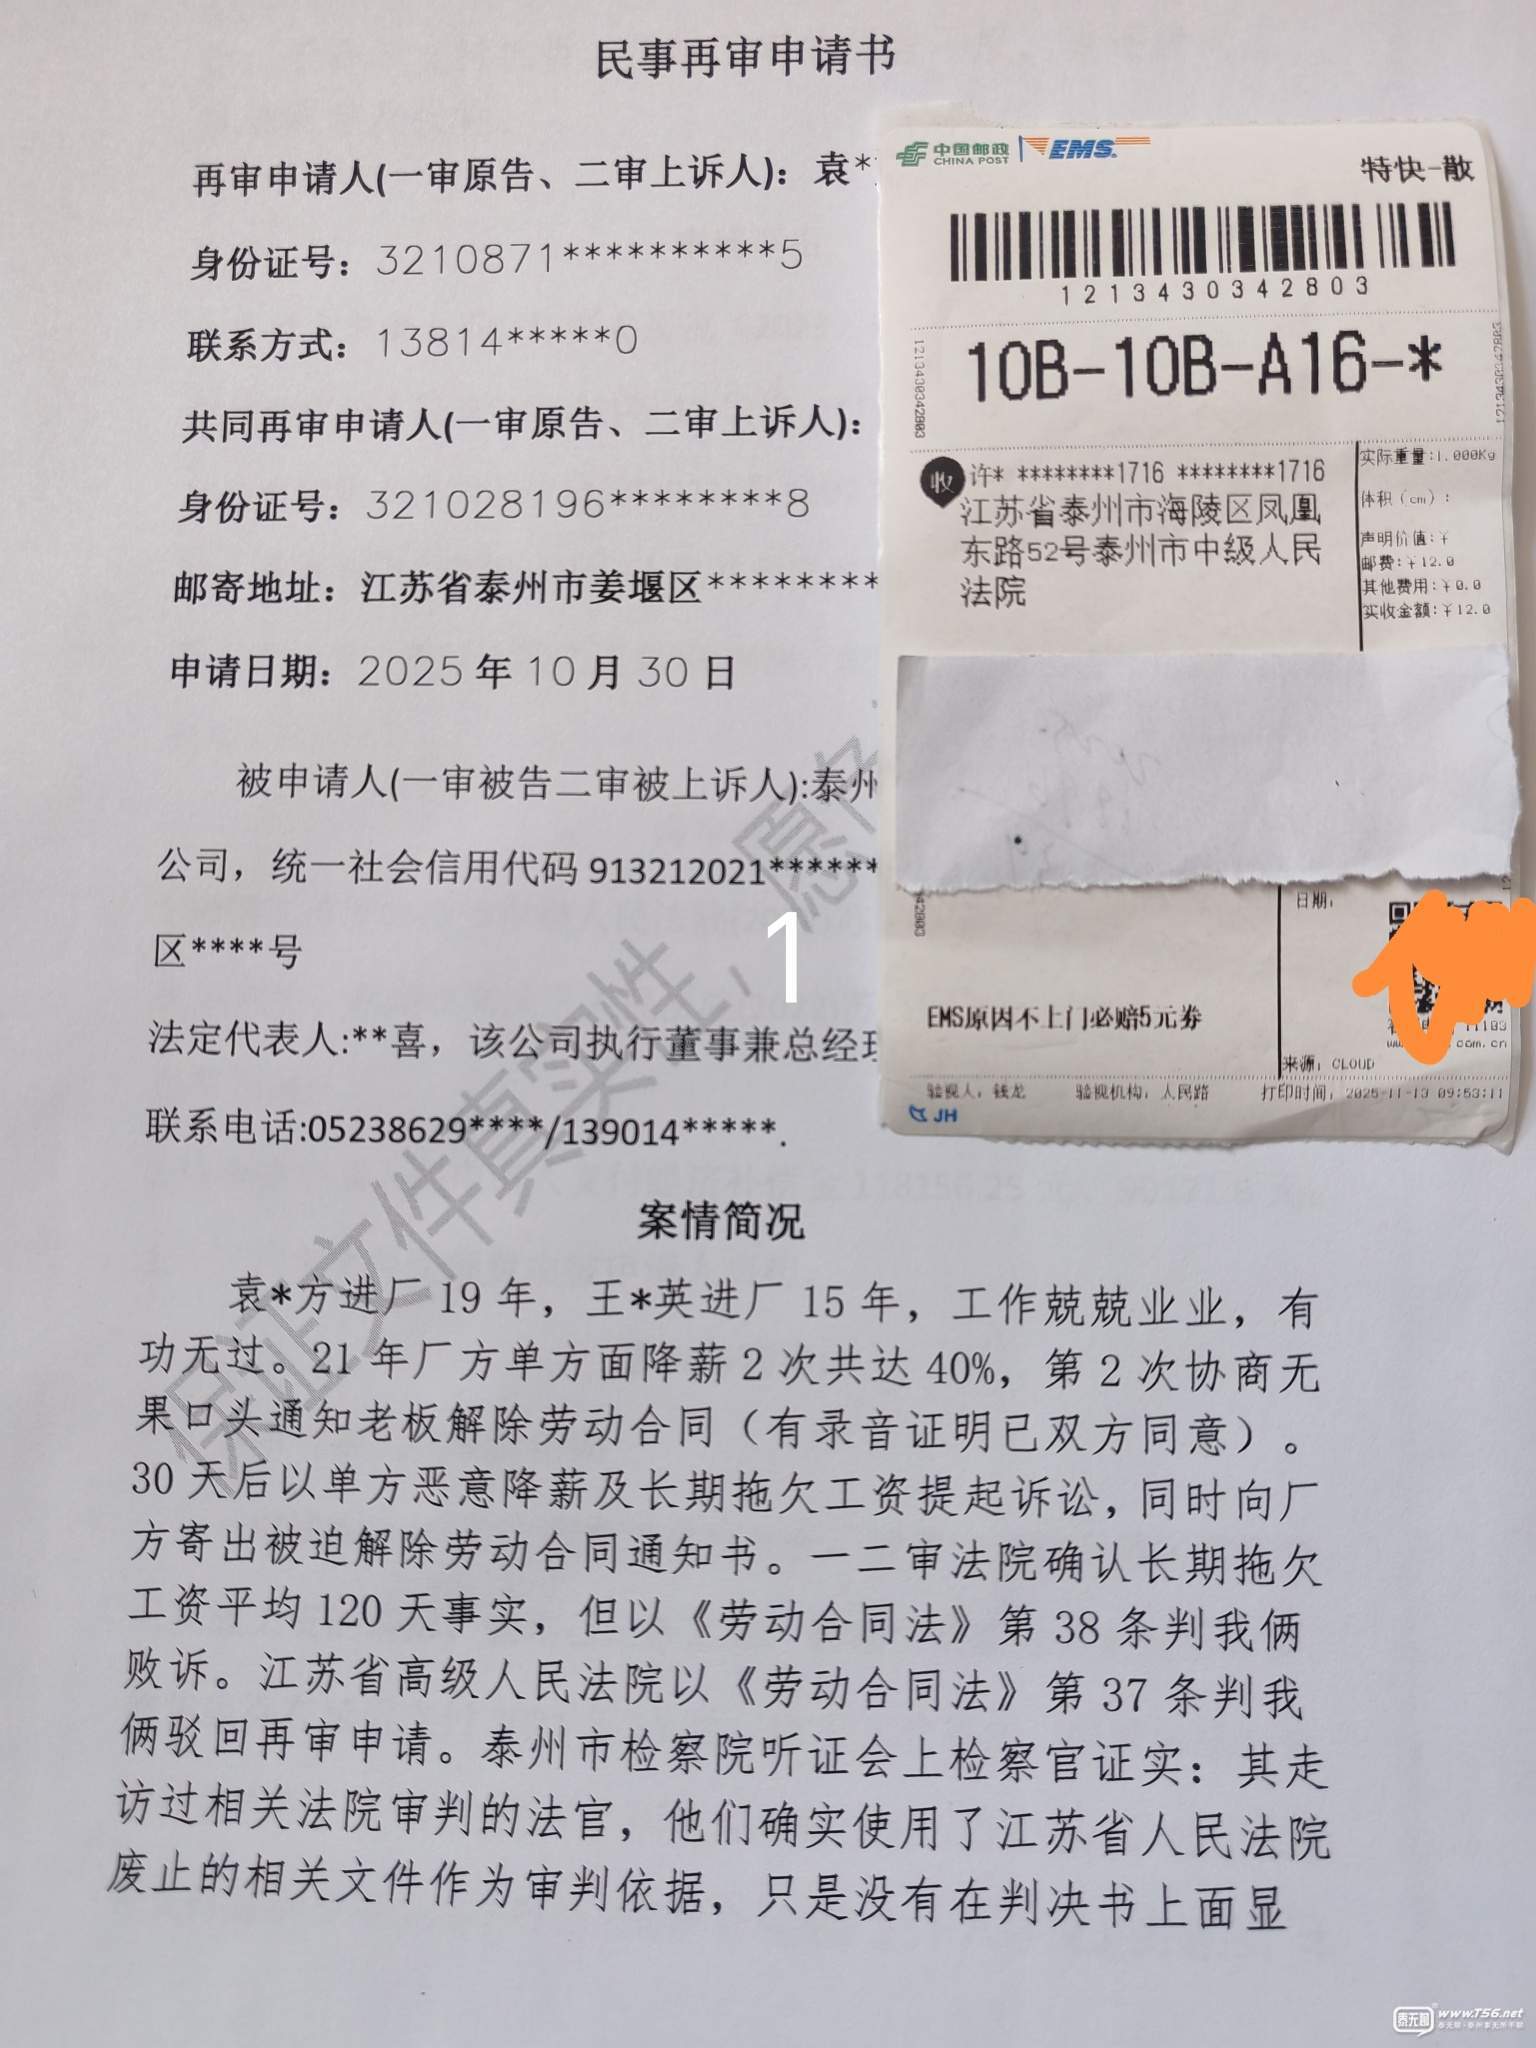 民事再审申请书
再审申请人(一审原告、二审上诉人)：袁*
身份证号：3210871**********5
联系方式：13814*****0
共同再审申请人(一审原告、二审上诉人)：
身份证号：321028196********8
邮寄地址：江苏省泰州市姜堰区********
申请日期：2025 年 10 月 30 日
被申请人(一审被告二审被上诉人):泰州
公司，统一社会信用代码 913212021******
区****号
法定代表人:**喜，该公司执行董事兼总经理
联系电话:05238629****/139014*****.
案情简况
袁*方进厂 19 年，王*英进厂 15 年，工作兢兢业业，有
功无过。21 年厂方单方面降薪 2 次共达 40%，第 2 次协商无
果口头通知老板解除劳动合同（有录音证明已双方同意）。
30 天后以单方恶意降薪及长期拖欠工资提起诉讼，同时向厂
方寄出被迫解除劳动合同通知书。一二审法院确认长期拖欠
工资平均 120 天事实，但以《劳动合同法》第 38 条判我俩
败诉。江苏省高级人民法院以《劳动合同法》第 37 条判我
俩驳回再审申请。泰州市检察院听证会上检察官证实：其走
访过相关法院审判的法官，他们确实使用了江苏省人民法院
废止的相关文件作为审判依据，只是没有在判决书上面显
保证文件真实性，愿
1
中国邮政
CHINA POST
EMS
特快-散
1213430342803
10B-10B-A16-*
1213430342803
1213430342803
收
许* ********1716 ********1716
江苏省泰州市海陵区凤凰
东路52号泰州市中级人民
法院
实际重量:1.000Kg
体积（cm）:
声明价值:￥
邮费:￥12.0
其他费用:￥0.0
实收金额:￥12.0
日期:
EMS原因不上门必赔5元券
11183
www
.com.cn
来源: CLOUD
验视人: 钱龙
验视机构: 人民路
打印时间: 2025-11-13 09:53:11
JH
泰无聊
www.T56.net